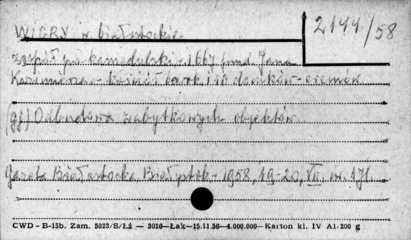 WIGRY w. białostockie
2144/58
zespół po kamedulski z 1667 fund. Jana
Kazimierza - kościół barok i 16 domków - eremów
gs) Odbudowa zabytkowych obiektów.
Gazeta Białostocka, Białystok - 1958, 19-20, VII, nr. 171.
CWD - B-15b. Zam. 5823/S/Łż — 3016—Łak—15.11.56—4.000.000—Karton kl. IV A1/200 g